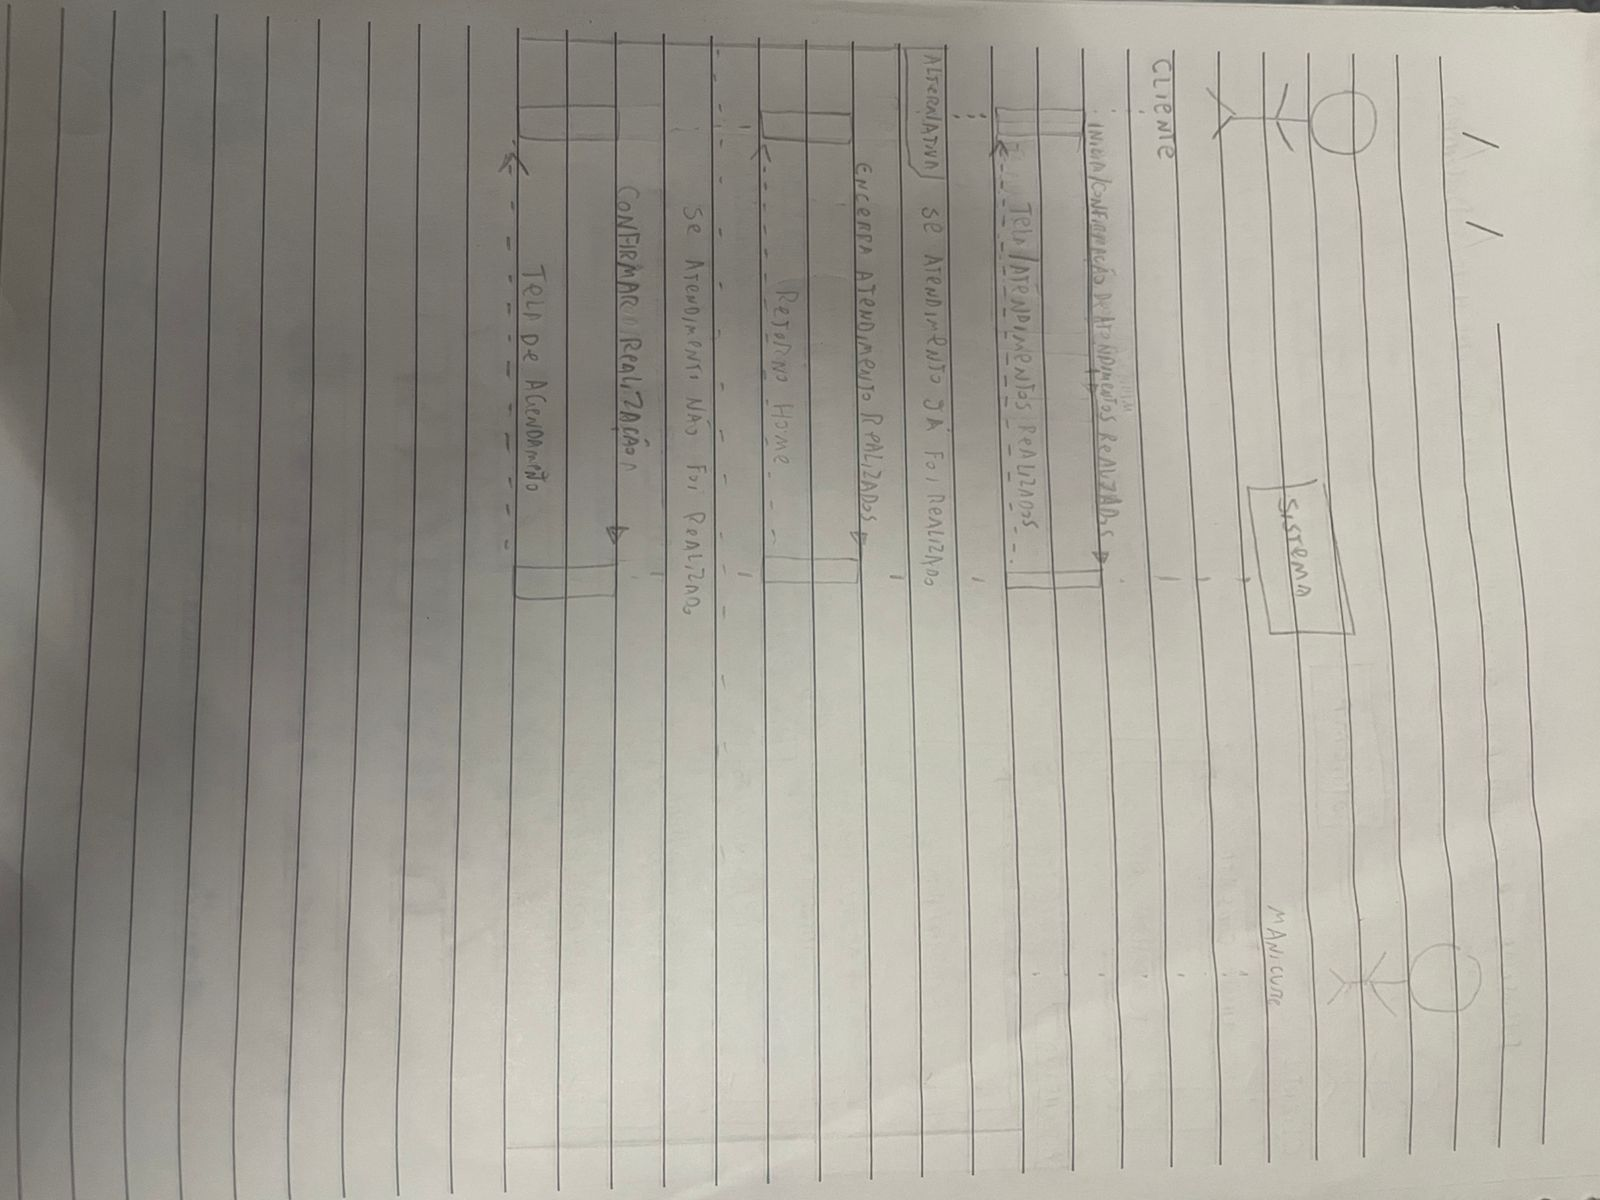 CLIENTE
SISTEMA
MANICURE
INICIA/CONFIRMAÇÃO DE ATENDIMENTOS REALIZADOS
TELA/ATENDIMENTOS REALIZADOS
ALTERNATIVA SE ATENDIMENTO JÁ FOI REALIZADO
ENCERRA ATENDIMENTO REALIZADOS
RETORNO HOME
SE ATENDIMENTO NÃO FOI REALIZADO
CONFIRMAR REALIZAÇÃO
TELA DE AGENDAMENTO